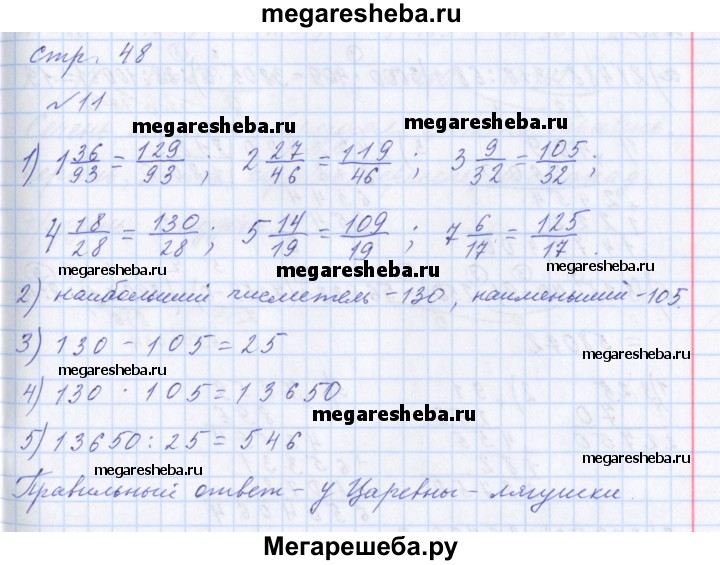 megaresheba.ru
стр. 48
№11
megaresheba.ru megaresheba.ru
1) 1 36/93 = 129/93 ; 2 27/46 = 119/46 ; 3 9/32 = 105/32 ;
4 18/28 = 130/28 ; 5 14/19 = 109/19 ; 7 6/17 = 125/17 .
megaresheba.ru megaresheba.ru megaresheba.ru
2) наибольший числитель - 130, наименьший - 105.
3) 130 - 105 = 25
megaresheba.ru
4) 130 · 105 = 13650
megaresheba.ru
5) 13650 : 25 = 546
megaresheba.ru megaresheba.ru
Правильный ответ - у Царевны - лягушки.
Мегарешеба.ру